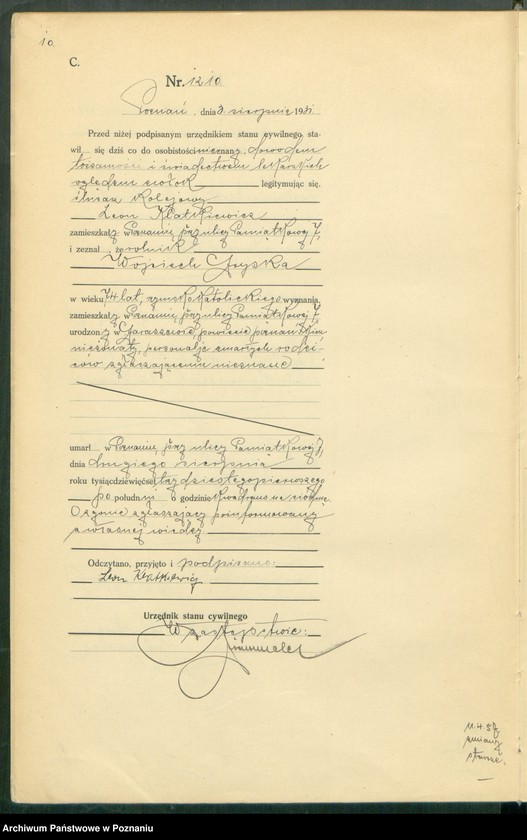 10
C.
Nr. 1210
Poznań, dnia 3. sierpnia 1931
Przed niżej podpisanym urzędnikiem stanu cywilnego sta-
wił się dziś co do osobistości nieznany, dowodem
tożsamości i świadectwem lekarskich
oględzin zwłok legitymując się.
Kolejowy
Leon Klatkiewicz
zamieszkały w Poznaniu przy ulicy Pamiątkowej 7,
i zeznał, że rolnik
Wojciech
w wieku 74 lat, rzymsko katolickiego wyznania,
zamieszkały w Poznaniu, przy ulicy Pamiątkowej 7,
urodzony w powiecie poznańskim
nieżonaty, personalje zmarłych rodzi-
ców zgłaszającemu nieznane
umarł w Poznaniu, przy ulicy Pamiątkowej 7,
dnia drugiego sierpnia
roku tysiąc dziewięćset trzydziestego pierwszego
po południu o godzinie kwadrans na siódmą
O zgonie zgłaszający poinformowany
z własnej wiedzy
Odczytano, przyjęto i podpisano:
Leon Klatkiewicz
Urzędnik stanu cywilnego
W zastępstwie:
Archiwum Państwowe w Poznaniu